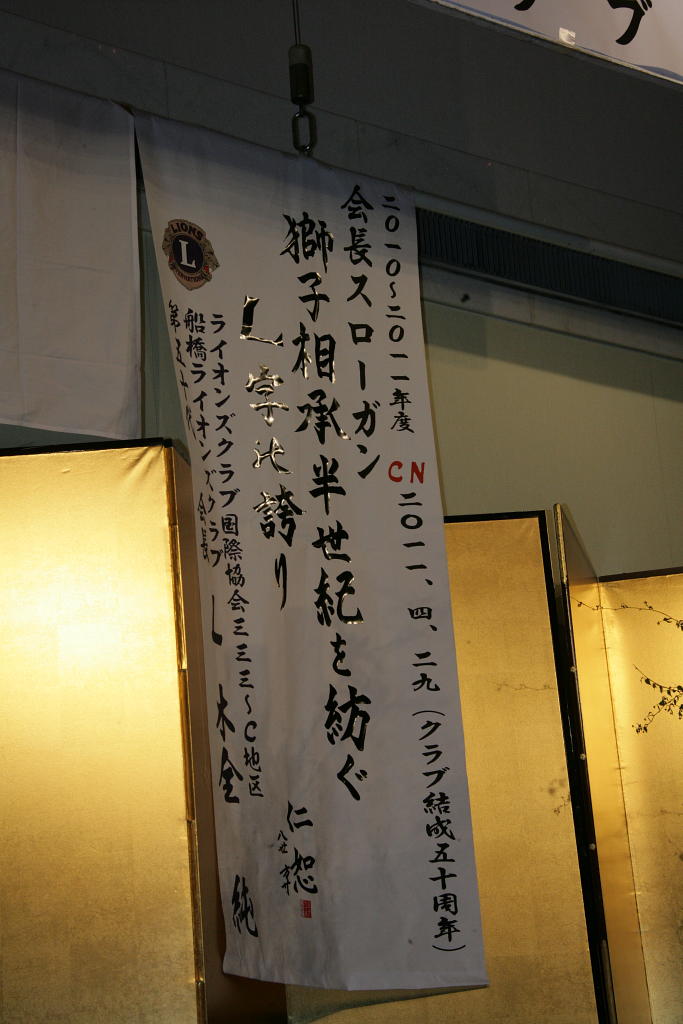 二〇一〇〜二〇一一年度 CN 二〇一一、四、二九（クラブ結成五十周年）
会長スローガン
獅子相承半世紀を紡ぐ
L字の誇り
仁恕
ライオンズクラブ国際協会三三三〜C地区
船橋ライオンズクラブ
第五十代 会長 L 木全 純
LIONS
L
INTERNATIONAL
ブ